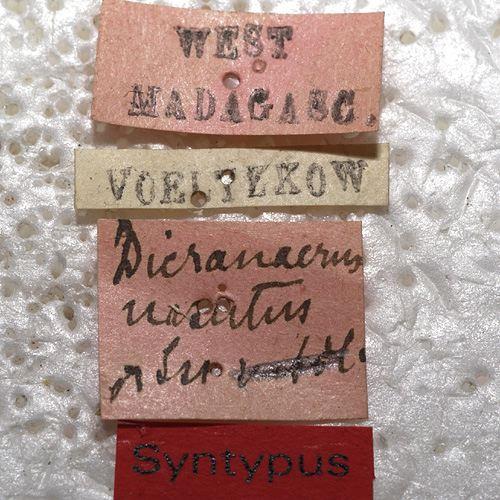 WEST
MADAGASC.
VOELTZKOW
Dicranacrus
nasutus
Syntypus